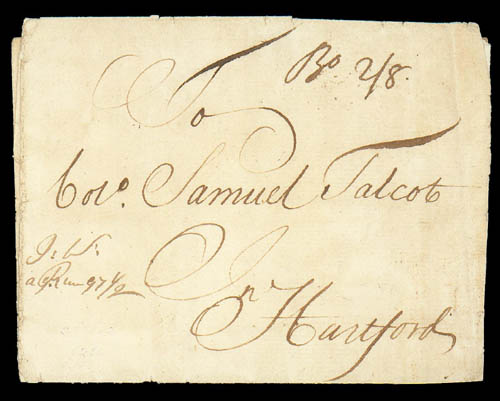 Bo 2/8.
To
Colo. Samuel Talcot
J: W:
97 1/2
In
Hartford